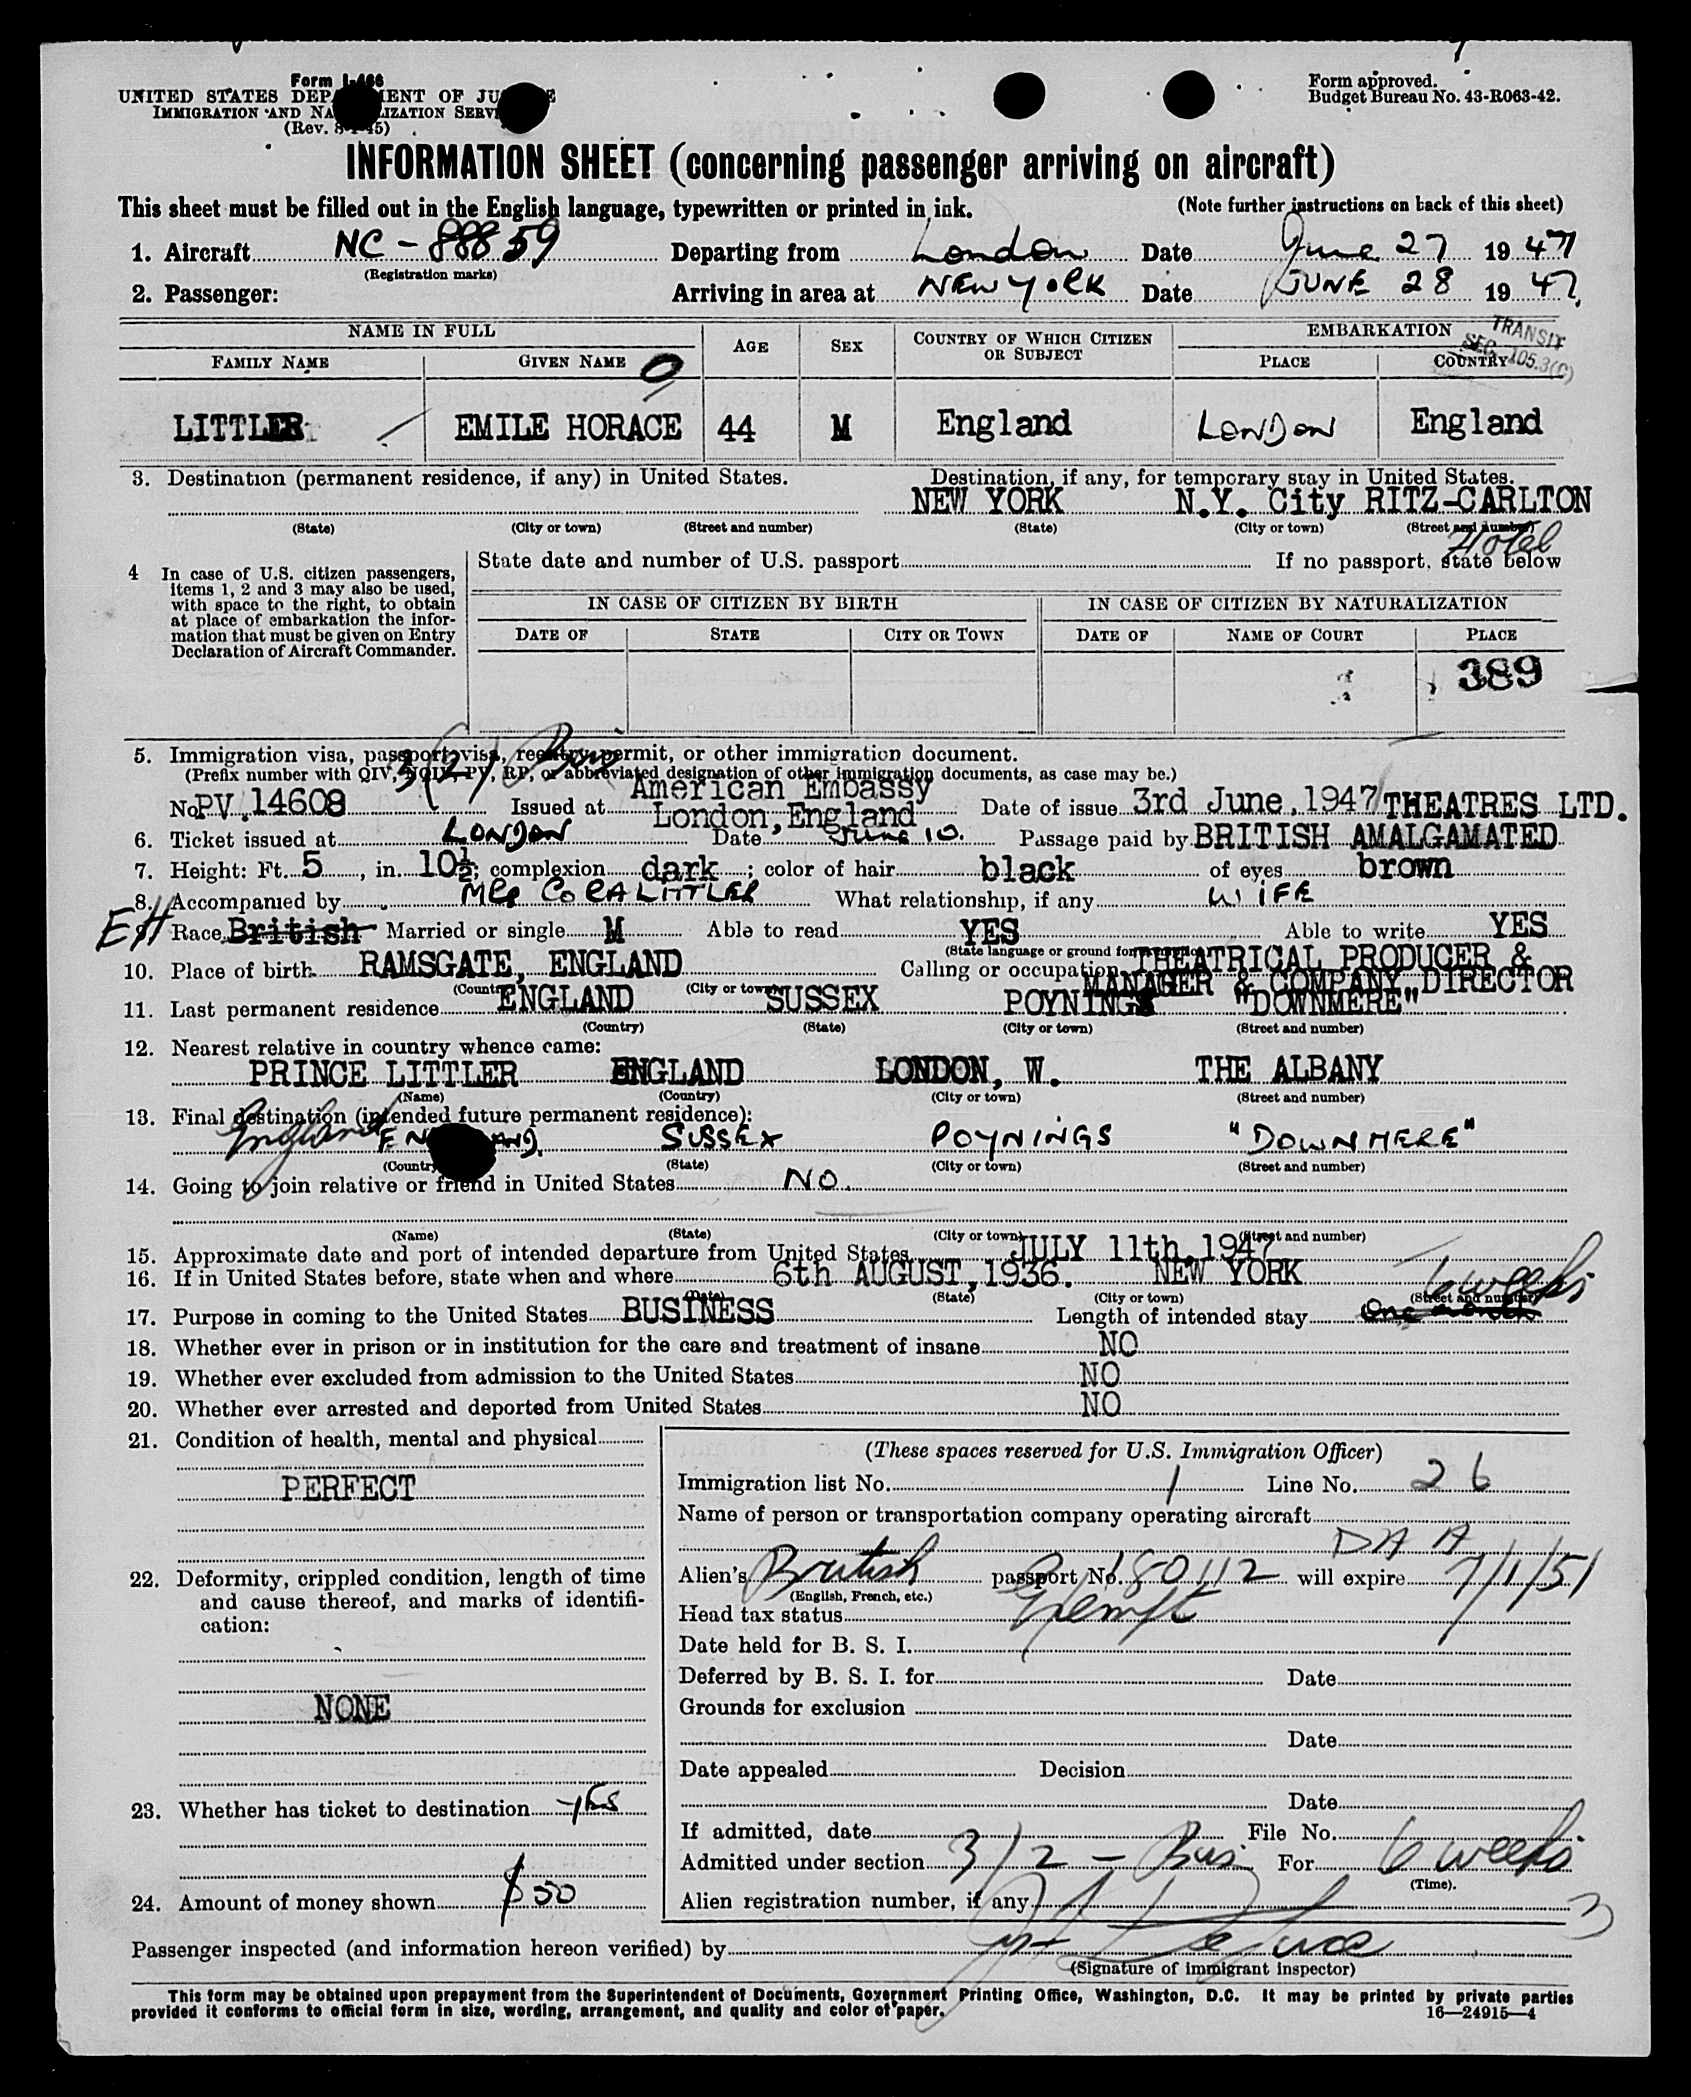 Form I-466
UNITED STATES DEPARTMENT OF JUSTICE
IMMIGRATION AND NATURALIZATION SERVICE
(Rev. 8-1-45)
Form approved.
Budget Bureau No. 43-R063-42.
INFORMATION SHEET (concerning passenger arriving on aircraft)
This sheet must be filled out in the English language, typewritten or printed in ink. (Note further instructions on back of this sheet)
1. Aircraft NC-88859 Departing from London Date June 27 1947
(Registration marks)
2. Passenger: Arriving in area at NEW YORK Date JUNE 28 1947.
NAME IN FULL AGE SEX COUNTRY OF WHICH CITIZEN OR SUBJECT EMBARKATION
TRANSIT
SEC. 105.3(C)
FAMILY NAME GIVEN NAME PLACE COUNTRY
LITTLER EMILE HORACE 44 M England LONDON England
3. Destination (permanent residence, if any) in United States. Destination, if any, for temporary stay in United States.
NEW YORK N.Y. City RITZ-CARLTON
(State) (City or town) (Street and number) (State) (City or town) (Street and number)
Hotel
4 In case of U.S. citizen passengers, items 1, 2 and 3 may also be used, with space to the right, to obtain at place of embarkation the information that must be given on Entry Declaration of Aircraft Commander.
State date and number of U.S. passport If no passport, state below
IN CASE OF CITIZEN BY BIRTH IN CASE OF CITIZEN BY NATURALIZATION
DATE OF STATE CITY OR TOWN DATE OF NAME OF COURT PLACE
389
5. Immigration visa, passport visa, reentry permit, or other immigration document.
3(2) Bus
(Prefix number with QIV, NQIV, PV, RP, or abbreviated designation of other immigration documents, as case may be.)
American Embassy
No. PV.14608 Issued at London, England Date of issue 3rd June, 1947 THEATRES LTD.
6. Ticket issued at LONDON Date June 10. Passage paid by BRITISH AMALGAMATED
7. Height: Ft. 5, in. 10½; complexion dark; color of hair black of eyes brown
8. Accompanied by MRS CORA LITTLER What relationship, if any WIFE
EH 9. Race British Married or single M Able to read YES Able to write YES
(State language or ground for exemption)
10. Place of birth RAMSGATE, ENGLAND Calling or occupation THEATRICAL PRODUCER & MANAGER & COMPANY DIRECTOR
(Country) (City or town)
11. Last permanent residence ENGLAND SUSSEX POYNINGS "DOWNMERE"
(Country) (State) (City or town) (Street and number)
12. Nearest relative in country whence came:
PRINCE LITTLER ENGLAND LONDON, W. THE ALBANY
(Name) (Country) (City or town) (Street and number)
13. Final destination (intended future permanent residence):
England ENGLAND. SUSSEX POYNINGS "DOWNMERE"
(Country) (State) (City or town) (Street and number)
14. Going to join relative or friend in United States NO.
(Name) (State) (City or town) (Street and number)
15. Approximate date and port of intended departure from United States JULY 11th, 1947
16. If in United States before, state when and where 6th AUGUST, 1936. NEW YORK
(Date) (State) (City or town) (Street and number)
6 weeks
17. Purpose in coming to the United States BUSINESS Length of intended stay One month
18. Whether ever in prison or in institution for the care and treatment of insane NO
19. Whether ever excluded from admission to the United States NO
20. Whether ever arrested and deported from United States NO
21. Condition of health, mental and physical
PERFECT
22. Deformity, crippled condition, length of time and cause thereof, and marks of identification:
NONE
23. Whether has ticket to destination yes
24. Amount of money shown $50
(These spaces reserved for U.S. Immigration Officer)
Immigration list No. 1 Line No. 26
Name of person or transportation company operating aircraft
Alien's British passport No. 180112 will expire 7/1/51
(English, French, etc.)
Head tax status Exempt
Date held for B. S. I.
Deferred by B. S. I. for Date
Grounds for exclusion
Date
Date appealed Decision
Date
If admitted, date File No.
Admitted under section 3/2 - Bus. For 6 weeks
(Time).
Alien registration number, if any
3
Passenger inspected (and information hereon verified) by
(Signature of immigrant inspector)
This form may be obtained upon prepayment from the Superintendent of Documents, Government Printing Office, Washington, D.C. It may be printed by private parties
provided it conforms to official form in size, wording, arrangement, and quality and color of paper.
16—24915-4